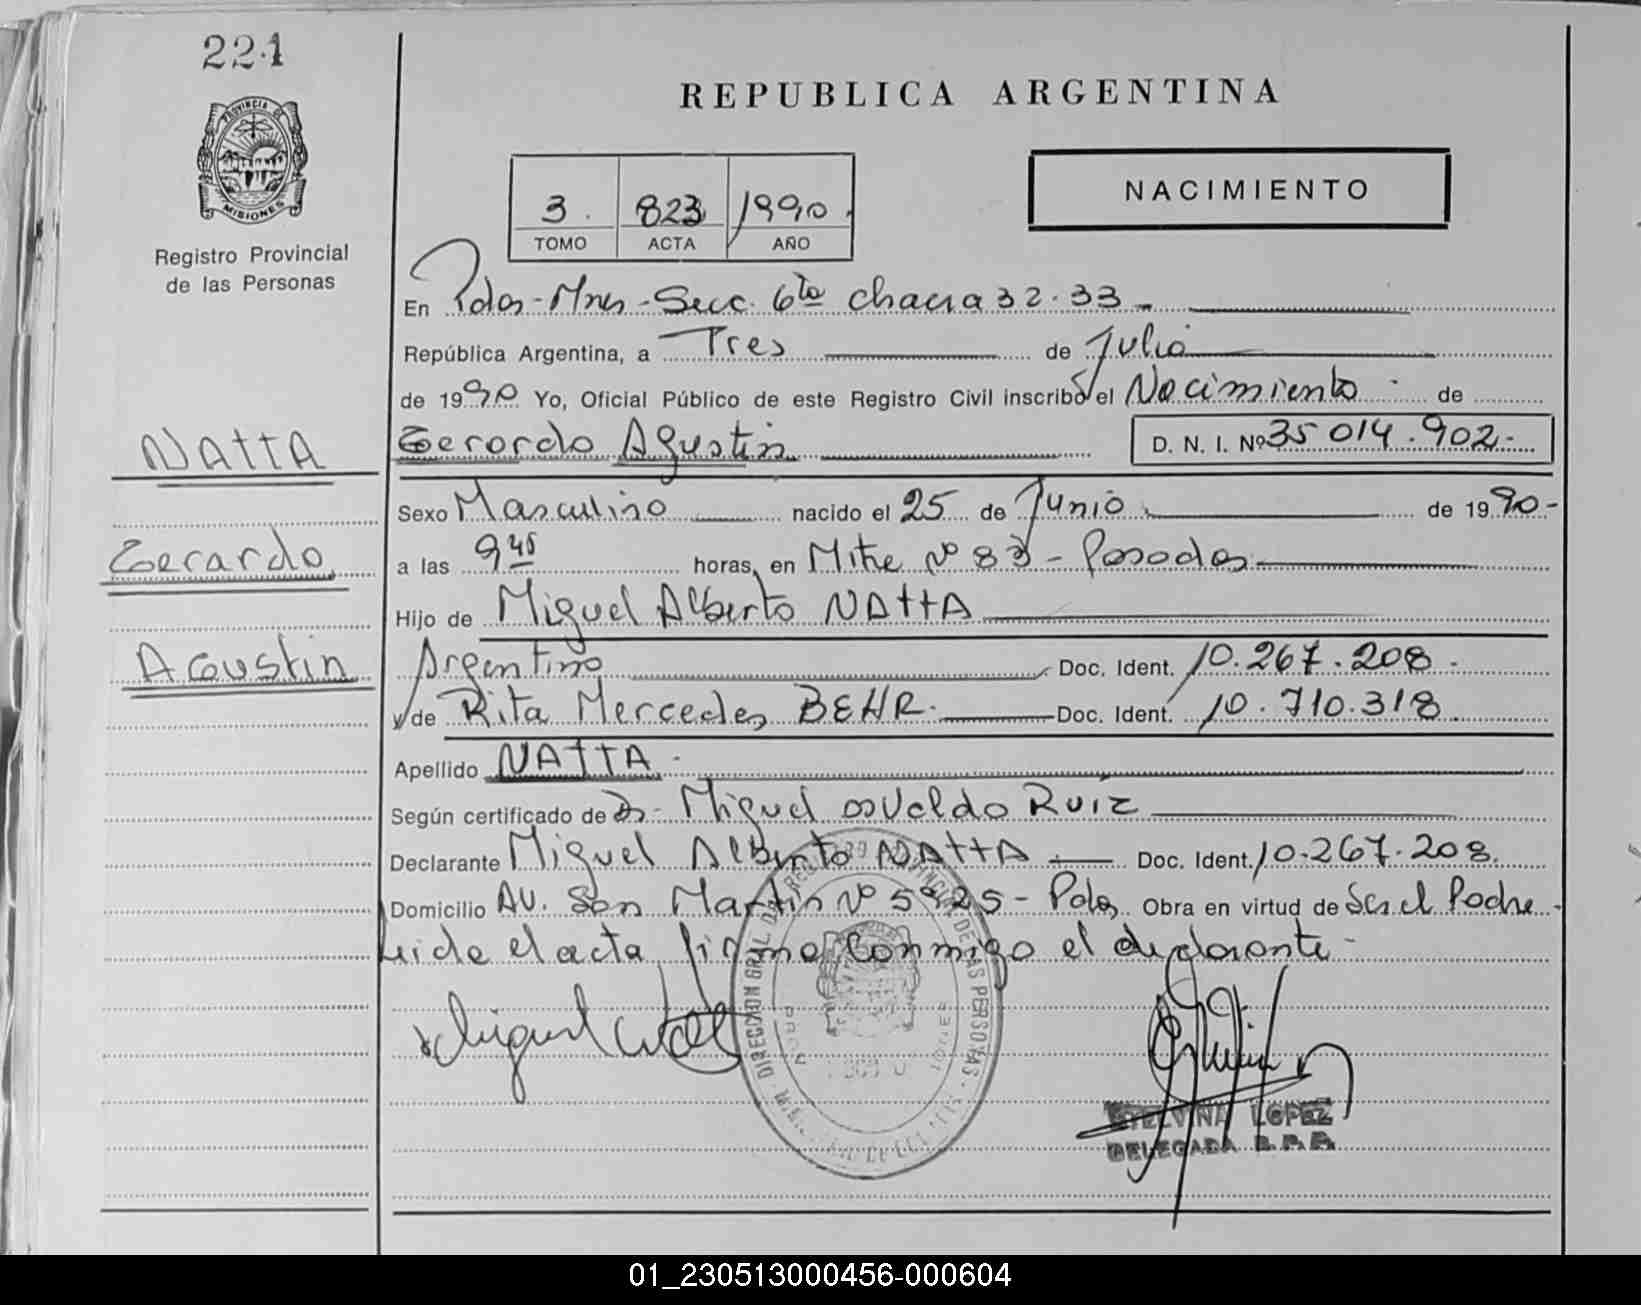 221
PROVINCIA DE
MISIONES
Registro Provincial
de las Personas
REPUBLICA ARGENTINA
NACIMIENTO
3. 823 1990.
TOMO ACTA AÑO
En Pdas-Mnes-Secc. 6ta chacra 32-33
República Argentina, a Tres de Julio
de 1990 Yo, Oficial Público de este Registro Civil inscribo el Nacimiento de
Gerardo Agustin D. N. I. Nº 35 014.902.-
NATTA
Gerardo
Agustin
Sexo Masculino nacido el 25 de Junio de 1990-
a las 9 45 horas, en Mitre Nº 83 - Posadas
Hijo de Miguel Alberto NATTA
Argentino Doc. Ident. 10.267.208.
y de Rita Mercedes BEHR. Doc. Ident. 10.710.318
Apellido NATTA.
Según certificado de Dr. Miguel osvaldo Ruiz
Declarante Miguel Alberto NATTA Doc. Ident. 10.267.208.
Domicilio Av. San Martin Nº 5925 - Pdas Obra en virtud de Ser el Padre
Leida el acta firma conmigo el declarante-
DIRECCION GRAL. DEL REG. PROVINCIAL DE LAS PERSONAS
ETELVINA LOPEZ
DELEGADA R.P.P.
01_230513000456-000604